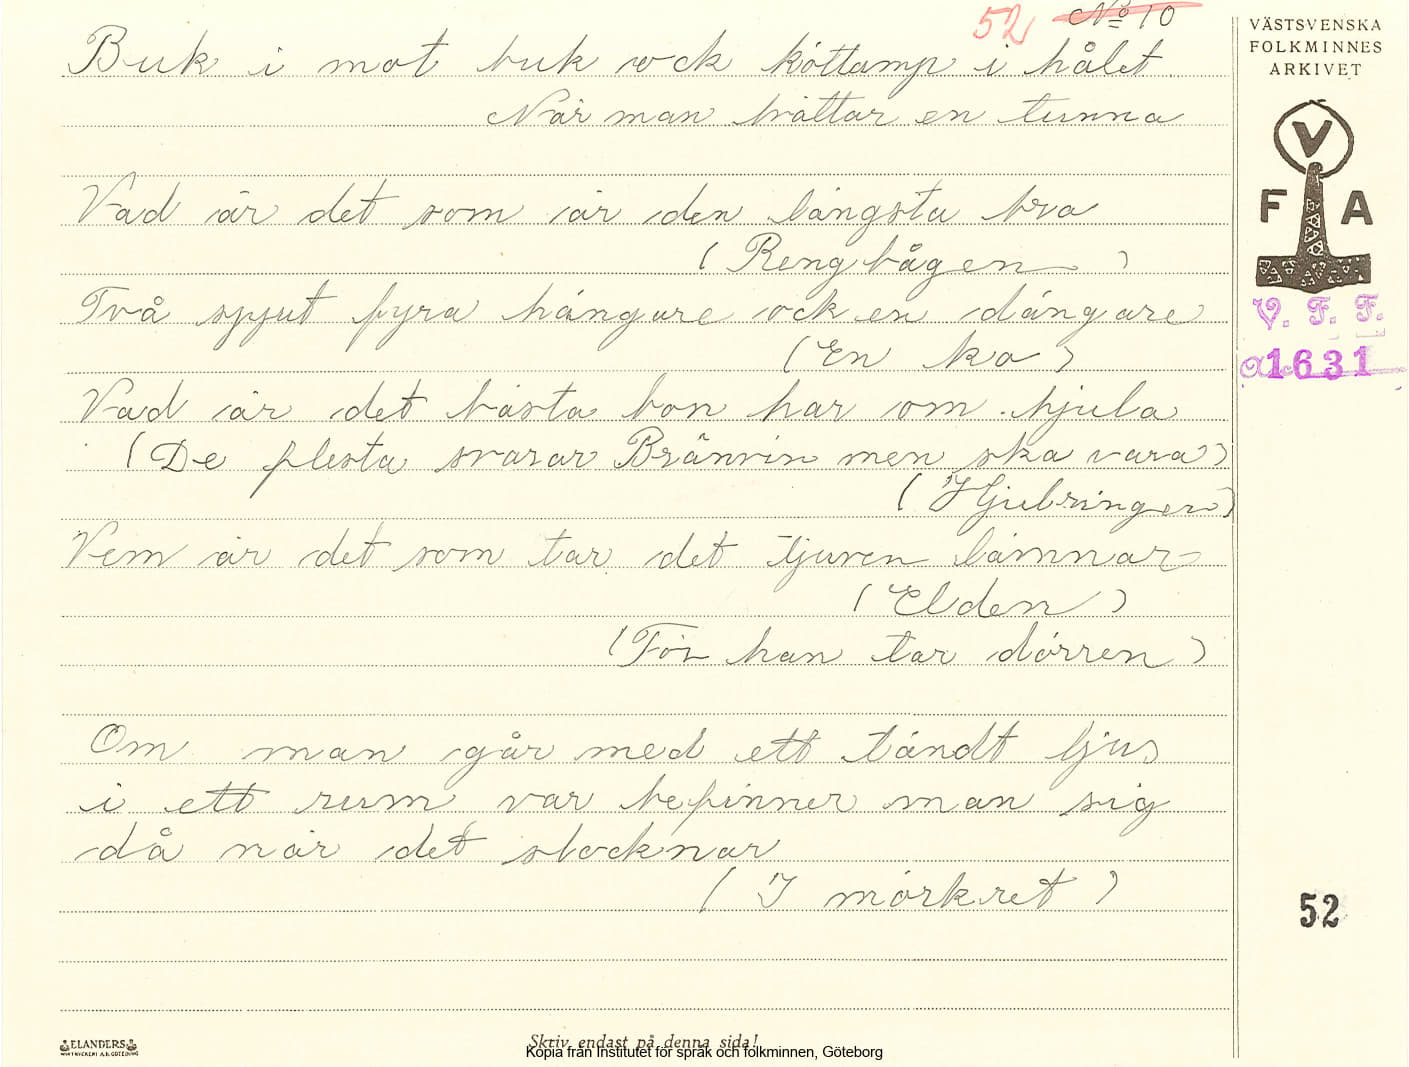 52 No 10
Buk i mot buk ock köttamp i hålet
När man tvättar en tunna
Vad är det som är den längsta bro
(Rengbågen)
Två spjut fyra hängare ock en dängare
(En ko)
Vad är det bästa bon har om hjula
(De flesta svarar Bränvin men ska vara)
(Hjulringen)
Vem är det som tar det tjuven lämnar
(Elden)
(För han tar dörren)
Om man går med ett tändt ljus
i ett rum var befinner man sig
då när det slocknar
(I mörkret)
VÄSTSVENSKA
FOLKMINNES
ARKIVET
V
F A
V. F. F.
1631
52
ELANDERS
Skriv endast på denna sida!
Kopia från Institutet för språk och folkminnen, Göteborg